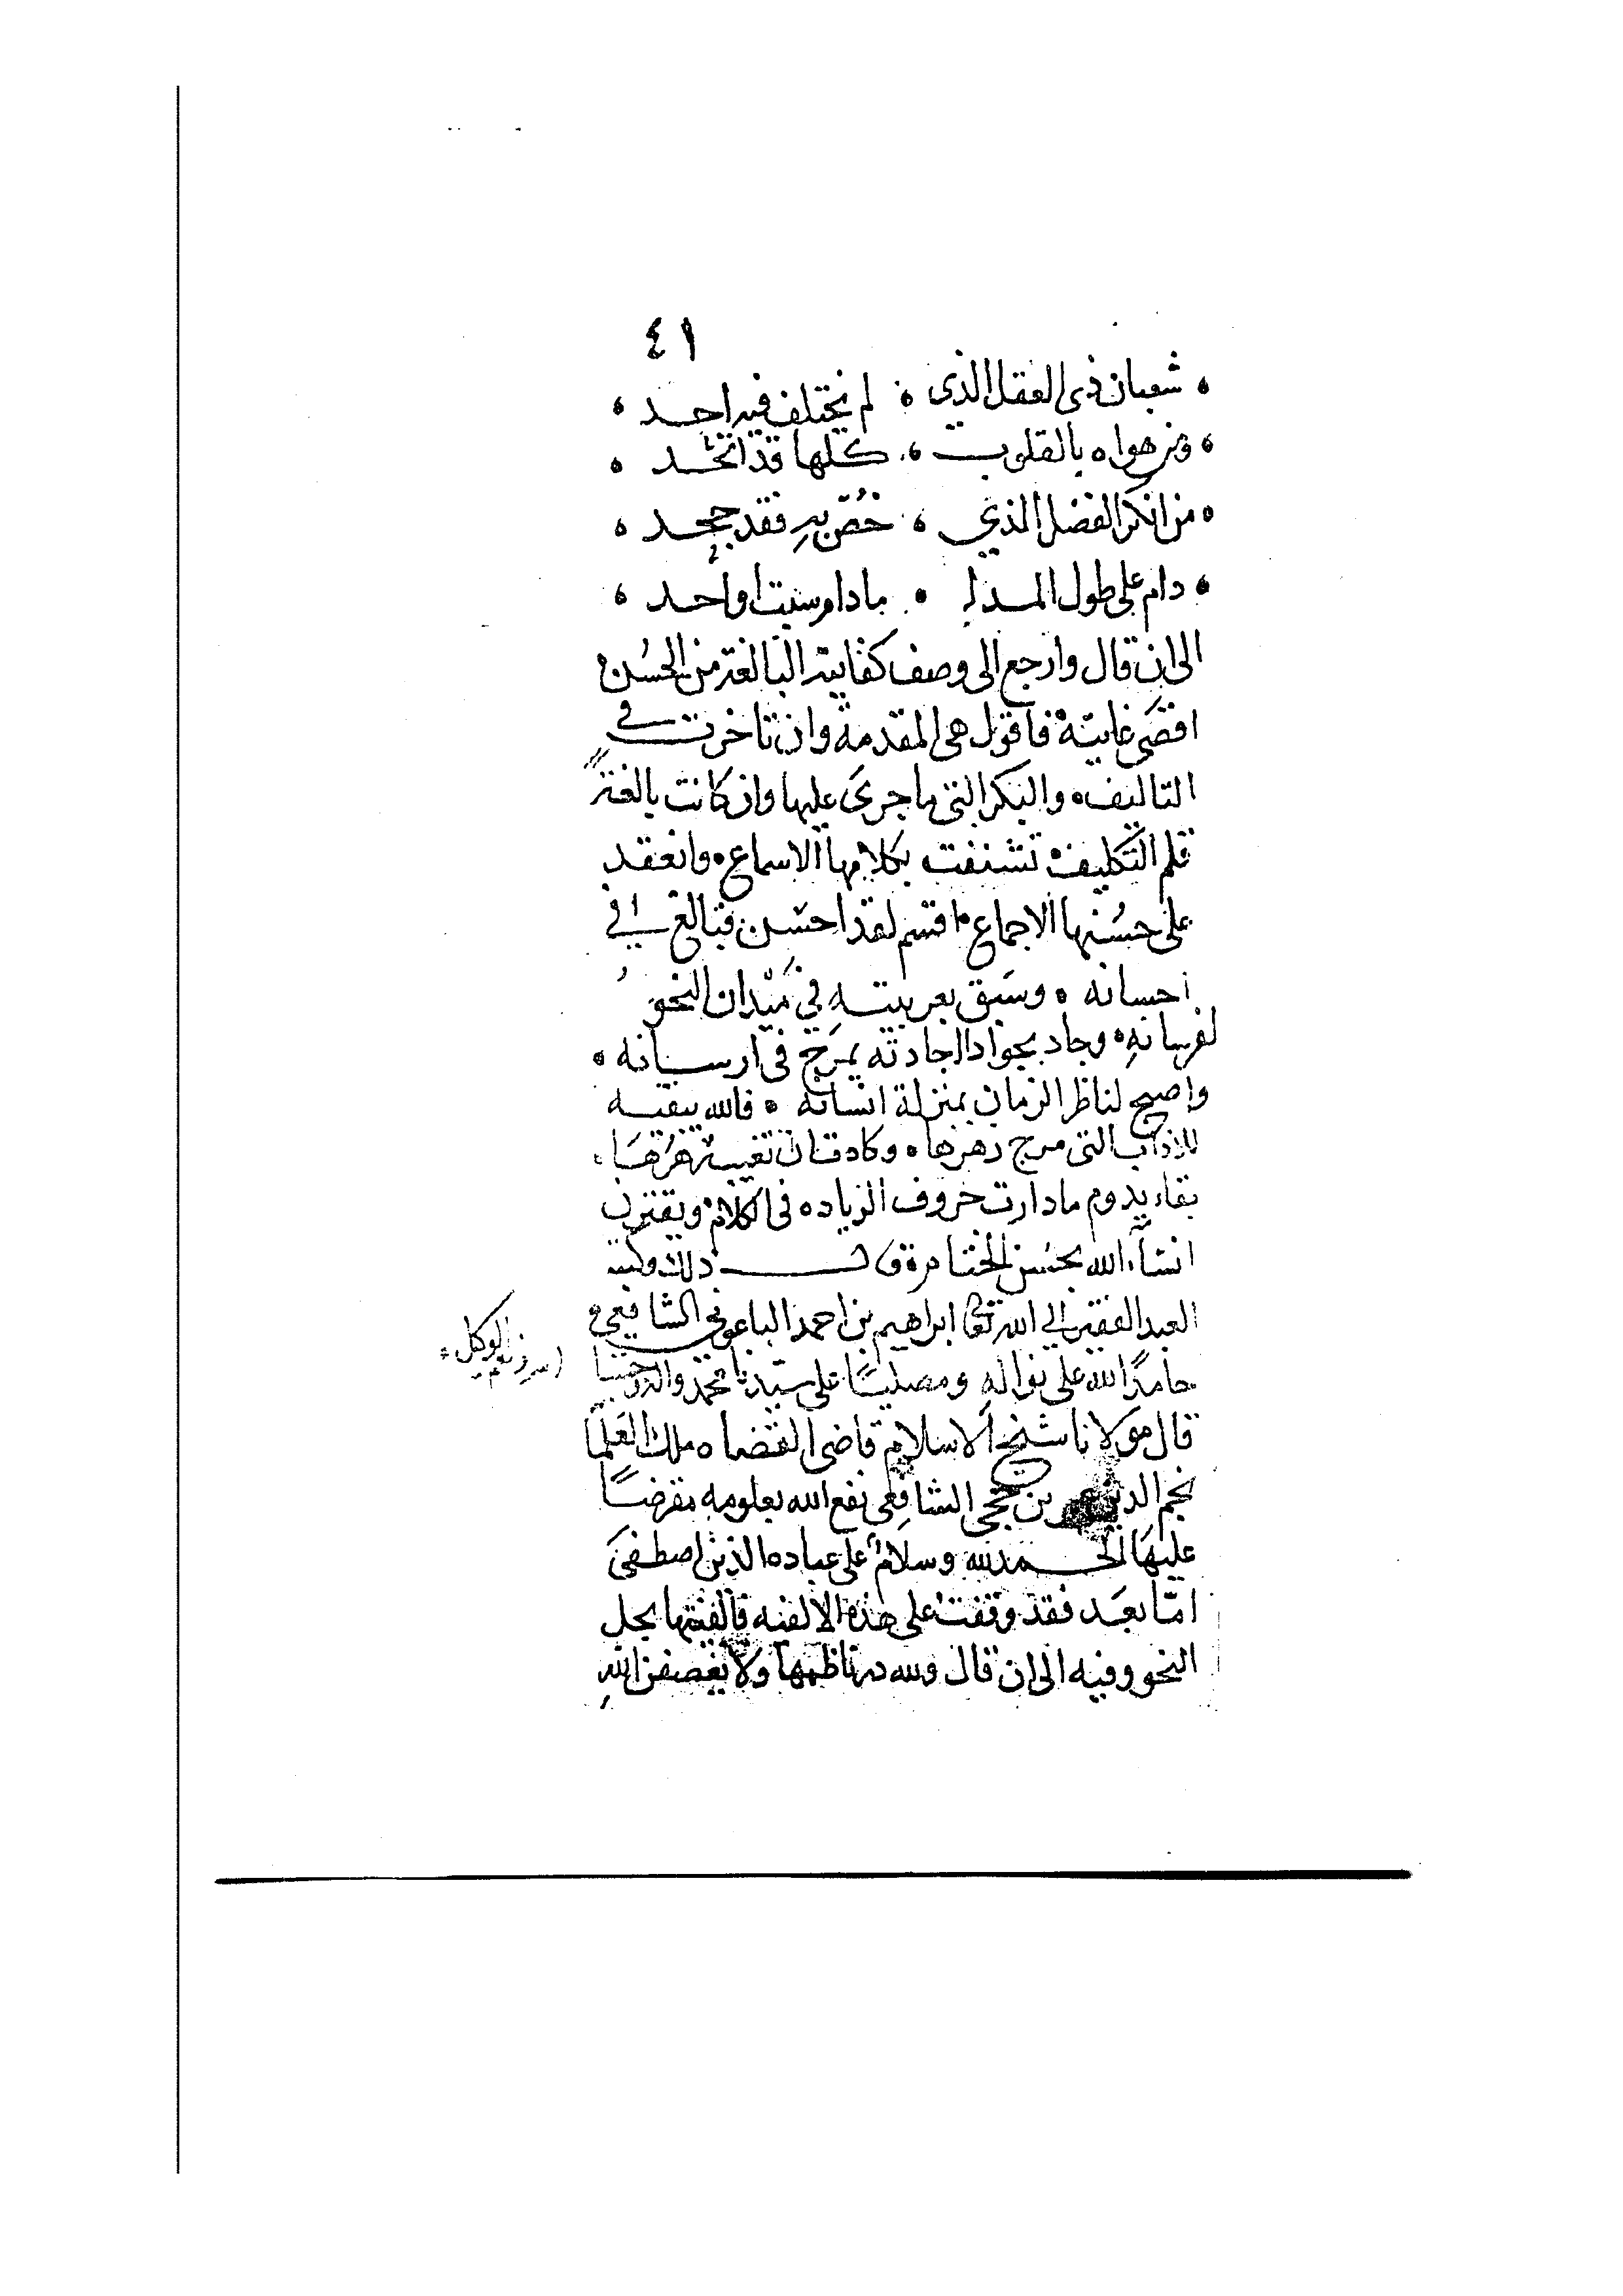 ٤١
شعبان ذى العقل الذى ، لم يختلف فيه احد ،
ومن هواه بالقلوب ، كلها قد اتحد ،
من انكر الفضل الذي ، خُصّ بهِ فقد جحد ،
دام على طول المدا ، ما دام سبت او احد ،
الى ان قال وارجع الى وصف كفايته البالغة من الحُسن
اقصى غايته فاقول هى المقدمة وان تاخرت فى
التاليف والبكر التى ما جرى عليها وان كانت بالغة
قلم التكليف تشنفت بكلامها الاسماع وانعقد
على حسُنها الاجماع اقسم لقد احسن فبالغ فى
احسانه وسبق بعربيته في مَيْدان النحو
لفرسانهِ وجاد بجواد اجادته يمرح فى ارسانه
واصبح لناظر الزمان بمنزلة انسانه فالله يبقيه
للاداب التى مرج زهرها وكادت ان تغيب زهرها
بقاء يدوم ما دارت حروف الزياده فى الكلام ويقترن
انشآء الله بحسن الختام قال ذلك وكتبه
العبد الفقير الى الله تعالى ابراهيم بن احمد الباعونى الشافعي
حامدًا لله على نواله ومصليًا على سيدنا محمد واله وحسبنا
ونعم الوكيل
قال مولانا شيخ الاسلام قاضى القضاه ملك العلما
نجم الدين بن حجى الشافعى نفع الله بعلومه مقرضًا
عليها الحمد لله وسلام على عباده الذين اصطفى
امّا بعد فقد وقفت على هذه الالفيه فالفيتها بحل
النحو وفيه الى ان قال ولله در ناظمها ولا يغض من الله